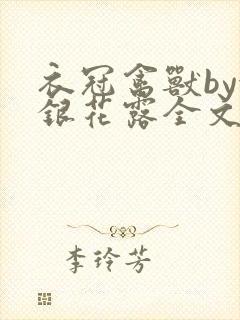 衣冠禽獸by
銀花露全文
李玲芳